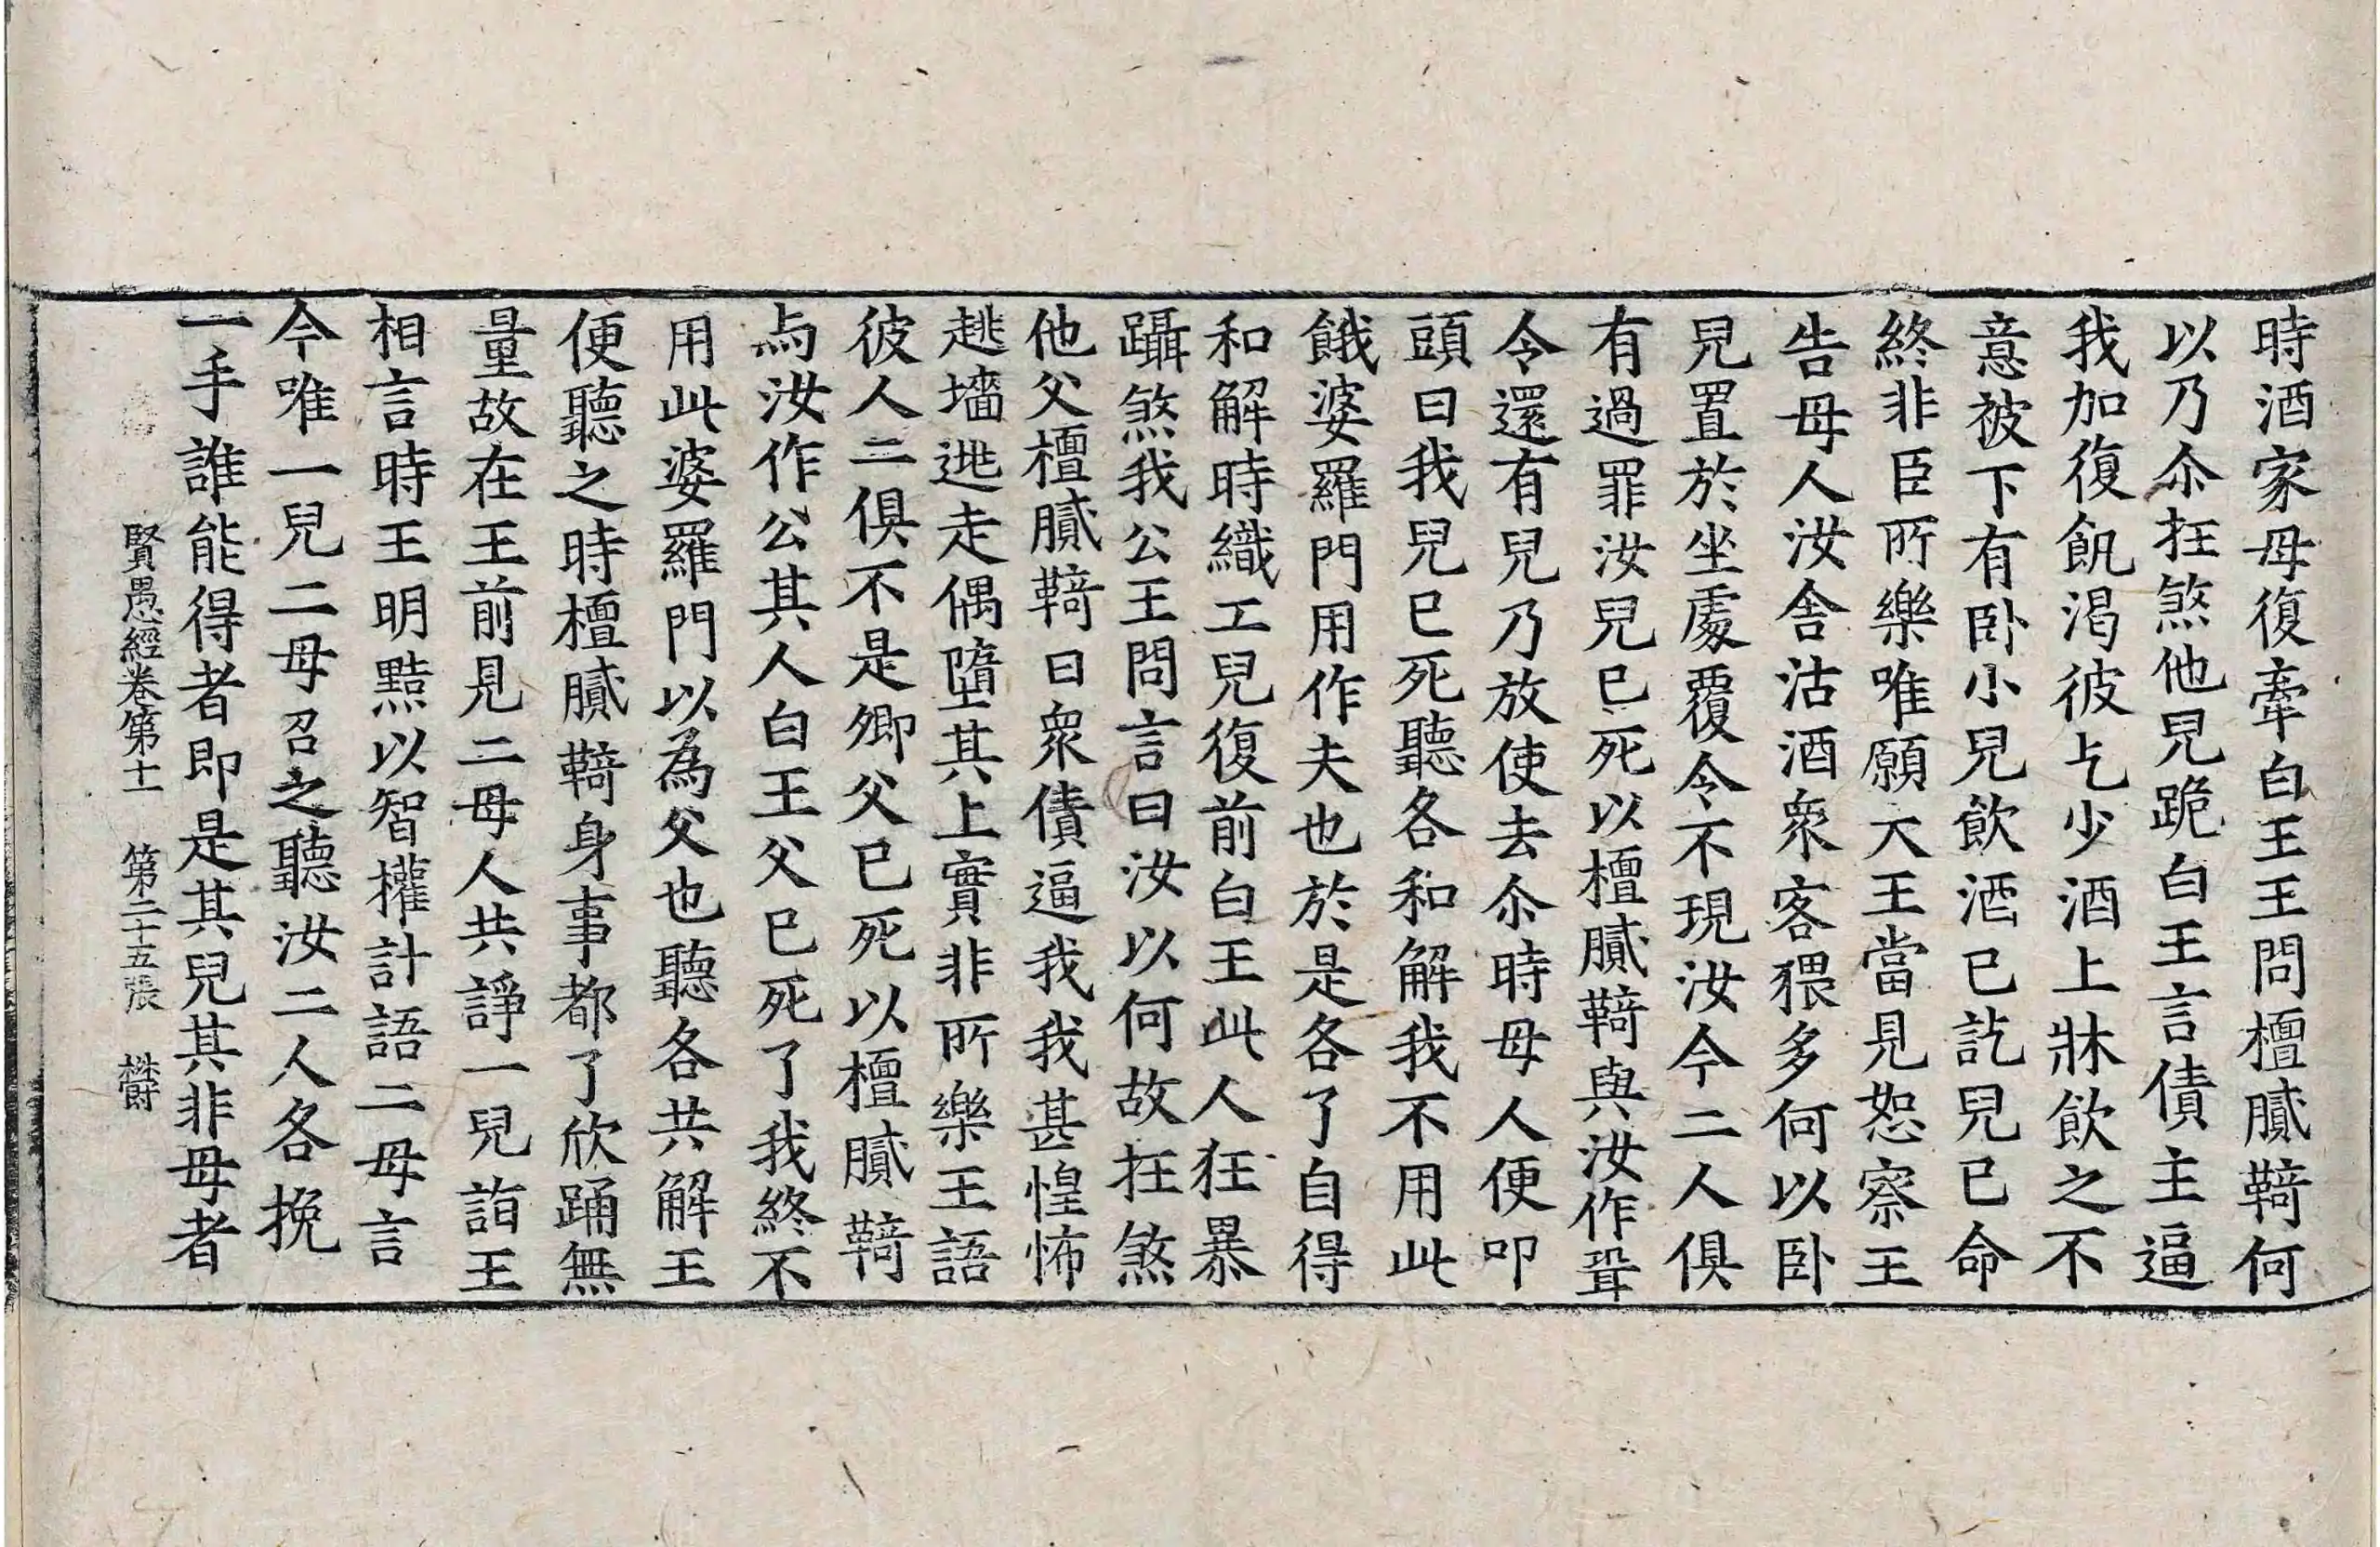 時酒家母復牽白王王問檀膩䩭何
以乃尒抂煞他兒跪白王言債主逼
我加復飢渴彼乞少酒上牀飲之不
意被下有卧小兒飲酒已訖兒已命
終非臣所樂唯願大王當見恕察王
告母人汝舍沽酒衆客猥多何以卧
兒置於坐處覆令不現汝今二人俱
有過罪汝兒已死以檀膩䩭與汝作壻
令還有兒乃放使去尒時母人便叩
頭曰我兒已死聽各和解我不用此
餓婆羅門用作夫也於是各了自得
和解時織工兒復前白王此人狂暴
躡煞我公王問言曰汝以何故抂煞
他父檀膩䩭曰衆債逼我我甚惶怖
趒墻逃走偶墮其上實非所樂王語
彼人二俱不是卿父已死以檀膩䩭
与汝作公其人白王父已死了我終不
用此婆羅門以為父也聽各共解王
便聽之時檀膩䩭身事都了欣踊無
量故在王前見二母人共諍一兒詣王
相言時王明黠以智權計語二母言
今唯一兒二母召之聽汝二人各挽
一手誰能得者即是其兒其非母者
賢愚經卷第十一 第二十五張 欝